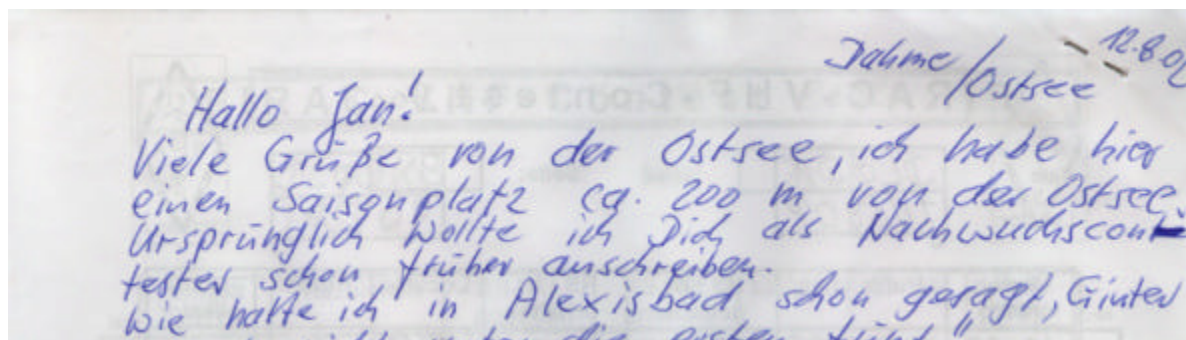 Dahme/Ostsee 12.8.02
Hallo Jan!
Viele Grüße von der Ostsee, ich habe hier
einen Saisonplatz ca. 200 m von der Ostsee.
Ursprünglich wollte ich Dich als Nachwuchscon-
tester schon früher anschreiben.
Wie hatte ich in Alexisbad schon gesagt, Ginter
unter die ersten fünf"